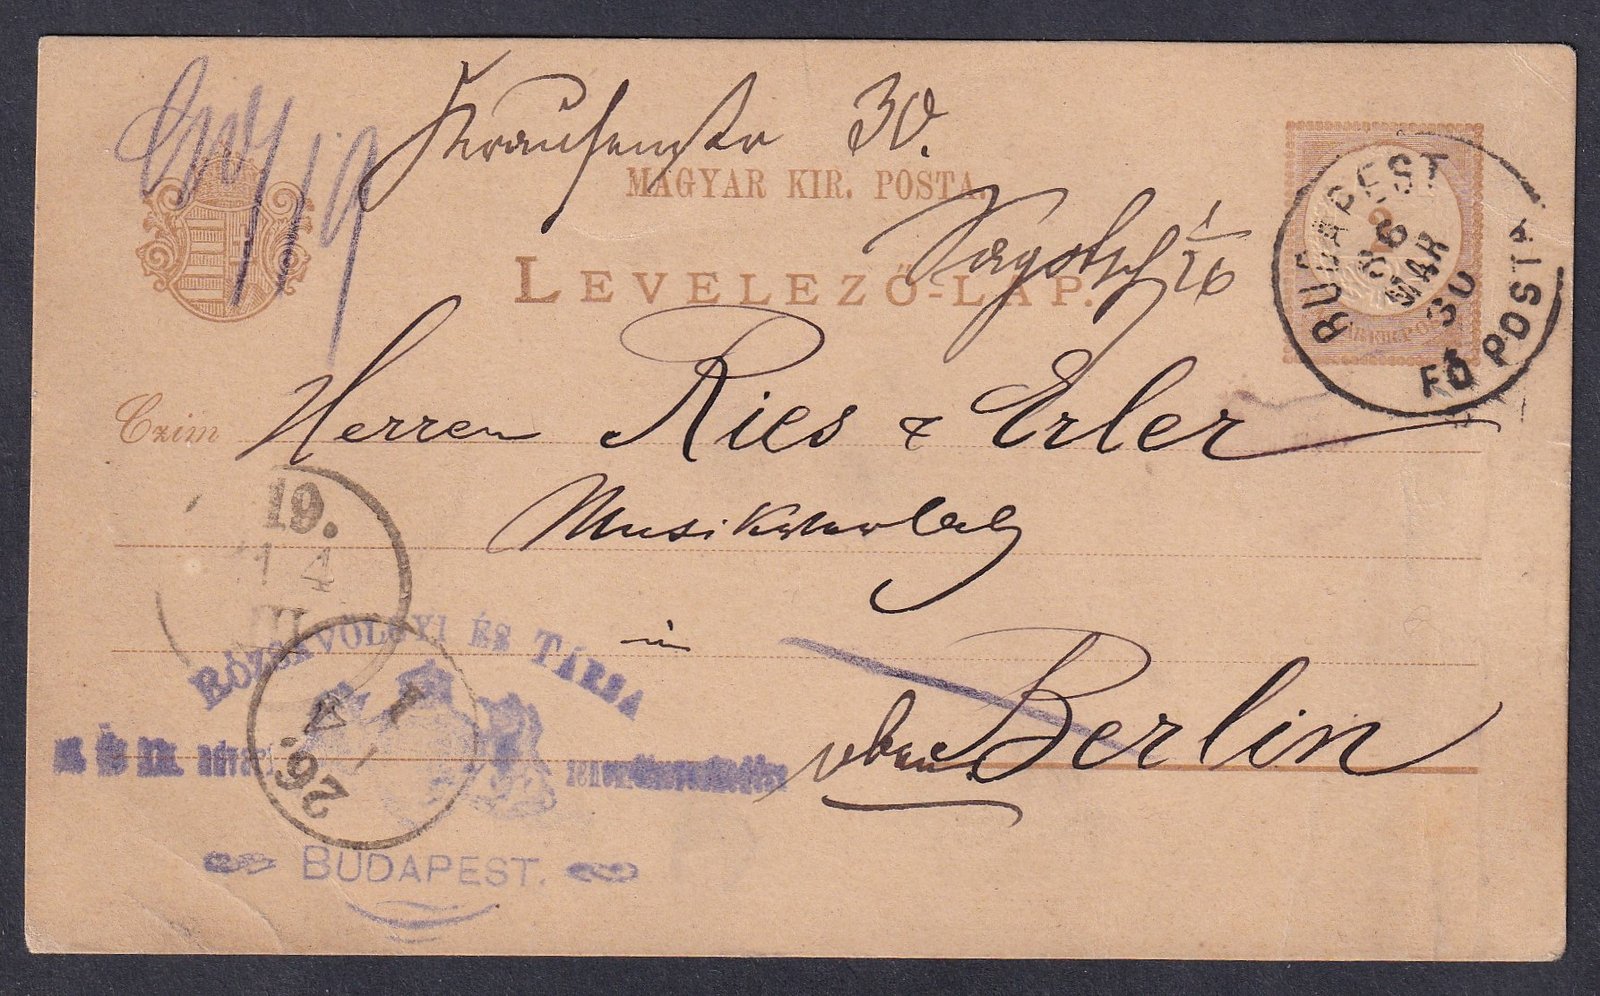 Krausenstr 30.
MAGYAR KIR. POSTA.
LEVELEZŐ-LAP.
BUDAPEST
86
MAR
30
FŐ POSTA
Czim
Herren Ries & Erler
Musikverlag
in
Berlin
19.
1 4
RÓZSAVÖLGYI ÉS TÁRSA
BUDAPEST.
26.
4
1